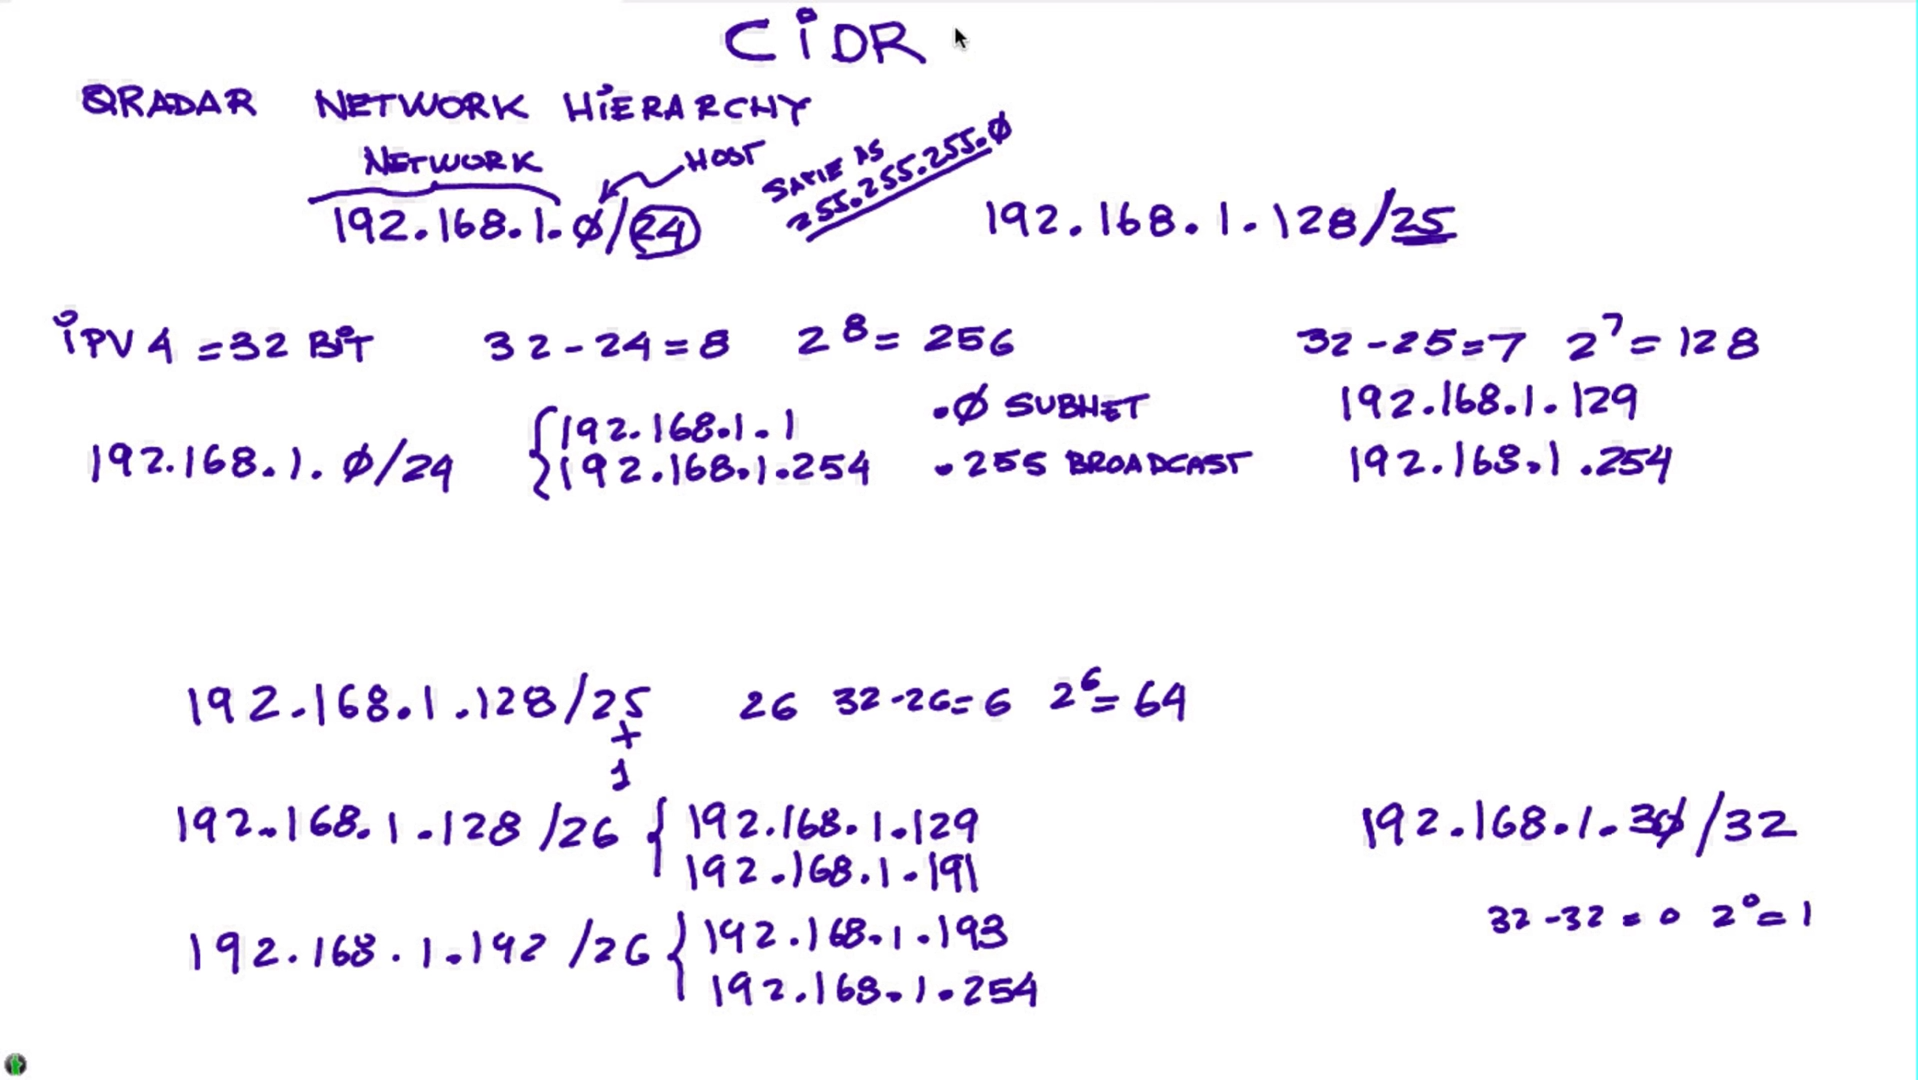 CiDR
QRADAR NETWORK HiERARCHY
NETWORK
HOST
SAME AS
255.255.255.Ø
192.168.1.Ø/24
192.168.1.128/25
iPV4 =32 BiT
32-24=8 2⁸= 256
32-25=7 2⁷= 128
192.168.1.Ø/24
192.168.1.1
192.168.1.254
.Ø SUBNET
.255 BROADCAST
192.168.1.129
192.168.1.254
192.168.1.128/25
+
1
26 32-26=6 2⁶=64
192.168.1.128/26
192.168.1.129
192.168.1.191
192.168.1.192/26
192.168.1.193
192.168.1.254
192.168.1.3Ø/32
32-32=0 2⁰=1